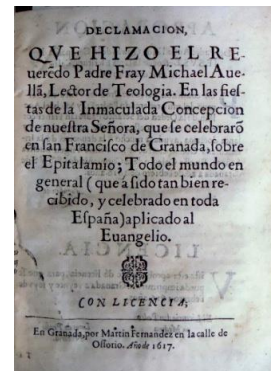 DECLAMACION,
QVE HIZO EL RE-
uerẽdo Padre Fray Michael Aue-
llã, Lector de Teologia. En las fies-
tas de la Inmaculada Concepcion
de nuestra Señora, que se celebrarõ
en san Francisco de Granada, sobre
el Epitalamio; Todo el mundo en
general (que á sido tan bien re-
cibido, y celebrado en toda
España) aplicado al
Euangelio.
CON LICENCIA;
En Granada, por Martin Fernandez en la calle de
Ossorio. Año de 1617.